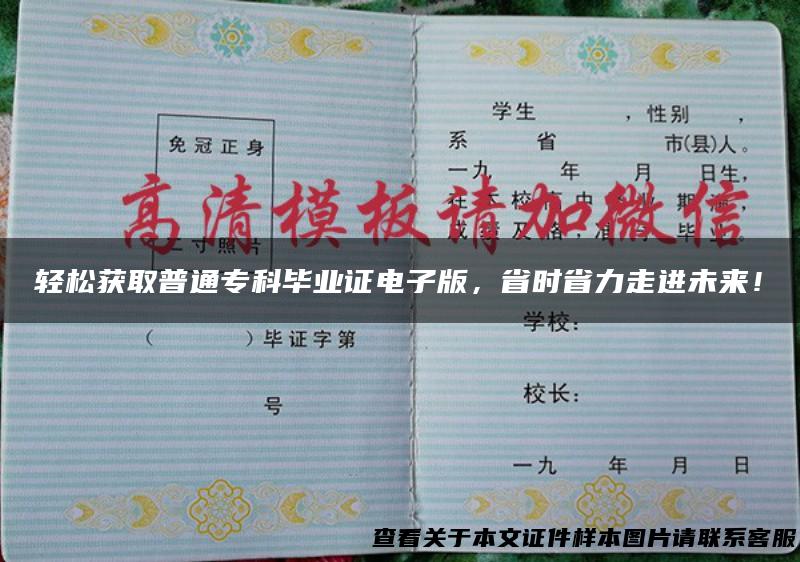 免冠正身
二寸照片
(　　　)毕证字第
号
学生　　　，性别　　，
系　　　省　　　　市(县)人。
一九　　年　　月　　日生，
高清模板请加微信
轻松获取普通专科毕业证电子版，省时省力走进未来！
学校：
校长：
一九　　年　　月　　日
查看关于本文证件样本图片请联系客服